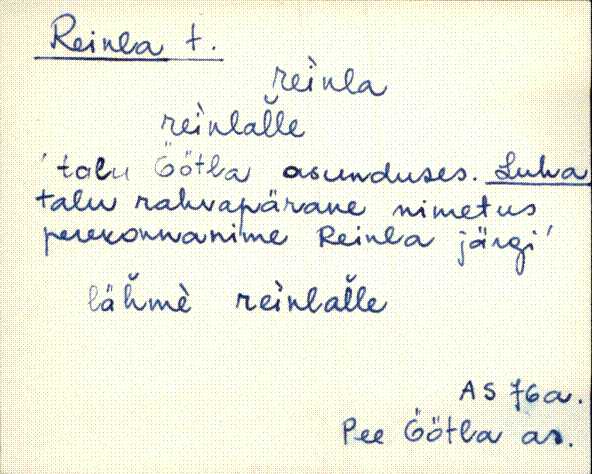 Reinla t.
rèinla
rèinlal̆le
'talu Öötla asunduses. Luha
talu rahvapärane nimetus
perekonnanime Reinla järgi'
läh̆mè rèinlal̆le
AS 76a.
Pee Öötla as.